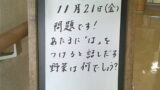 11月21日(金)
問題です!
あたまに"は"を
つけると話しだす
野菜は何でしょう?